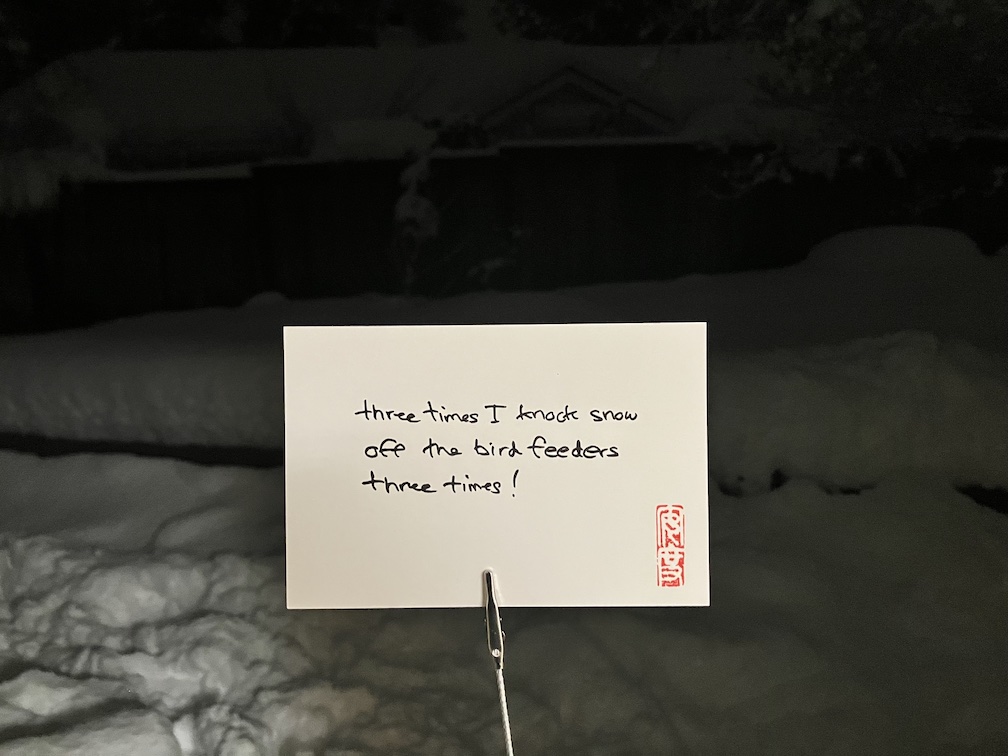 three times I knock snow
off the bird feeders
three times!